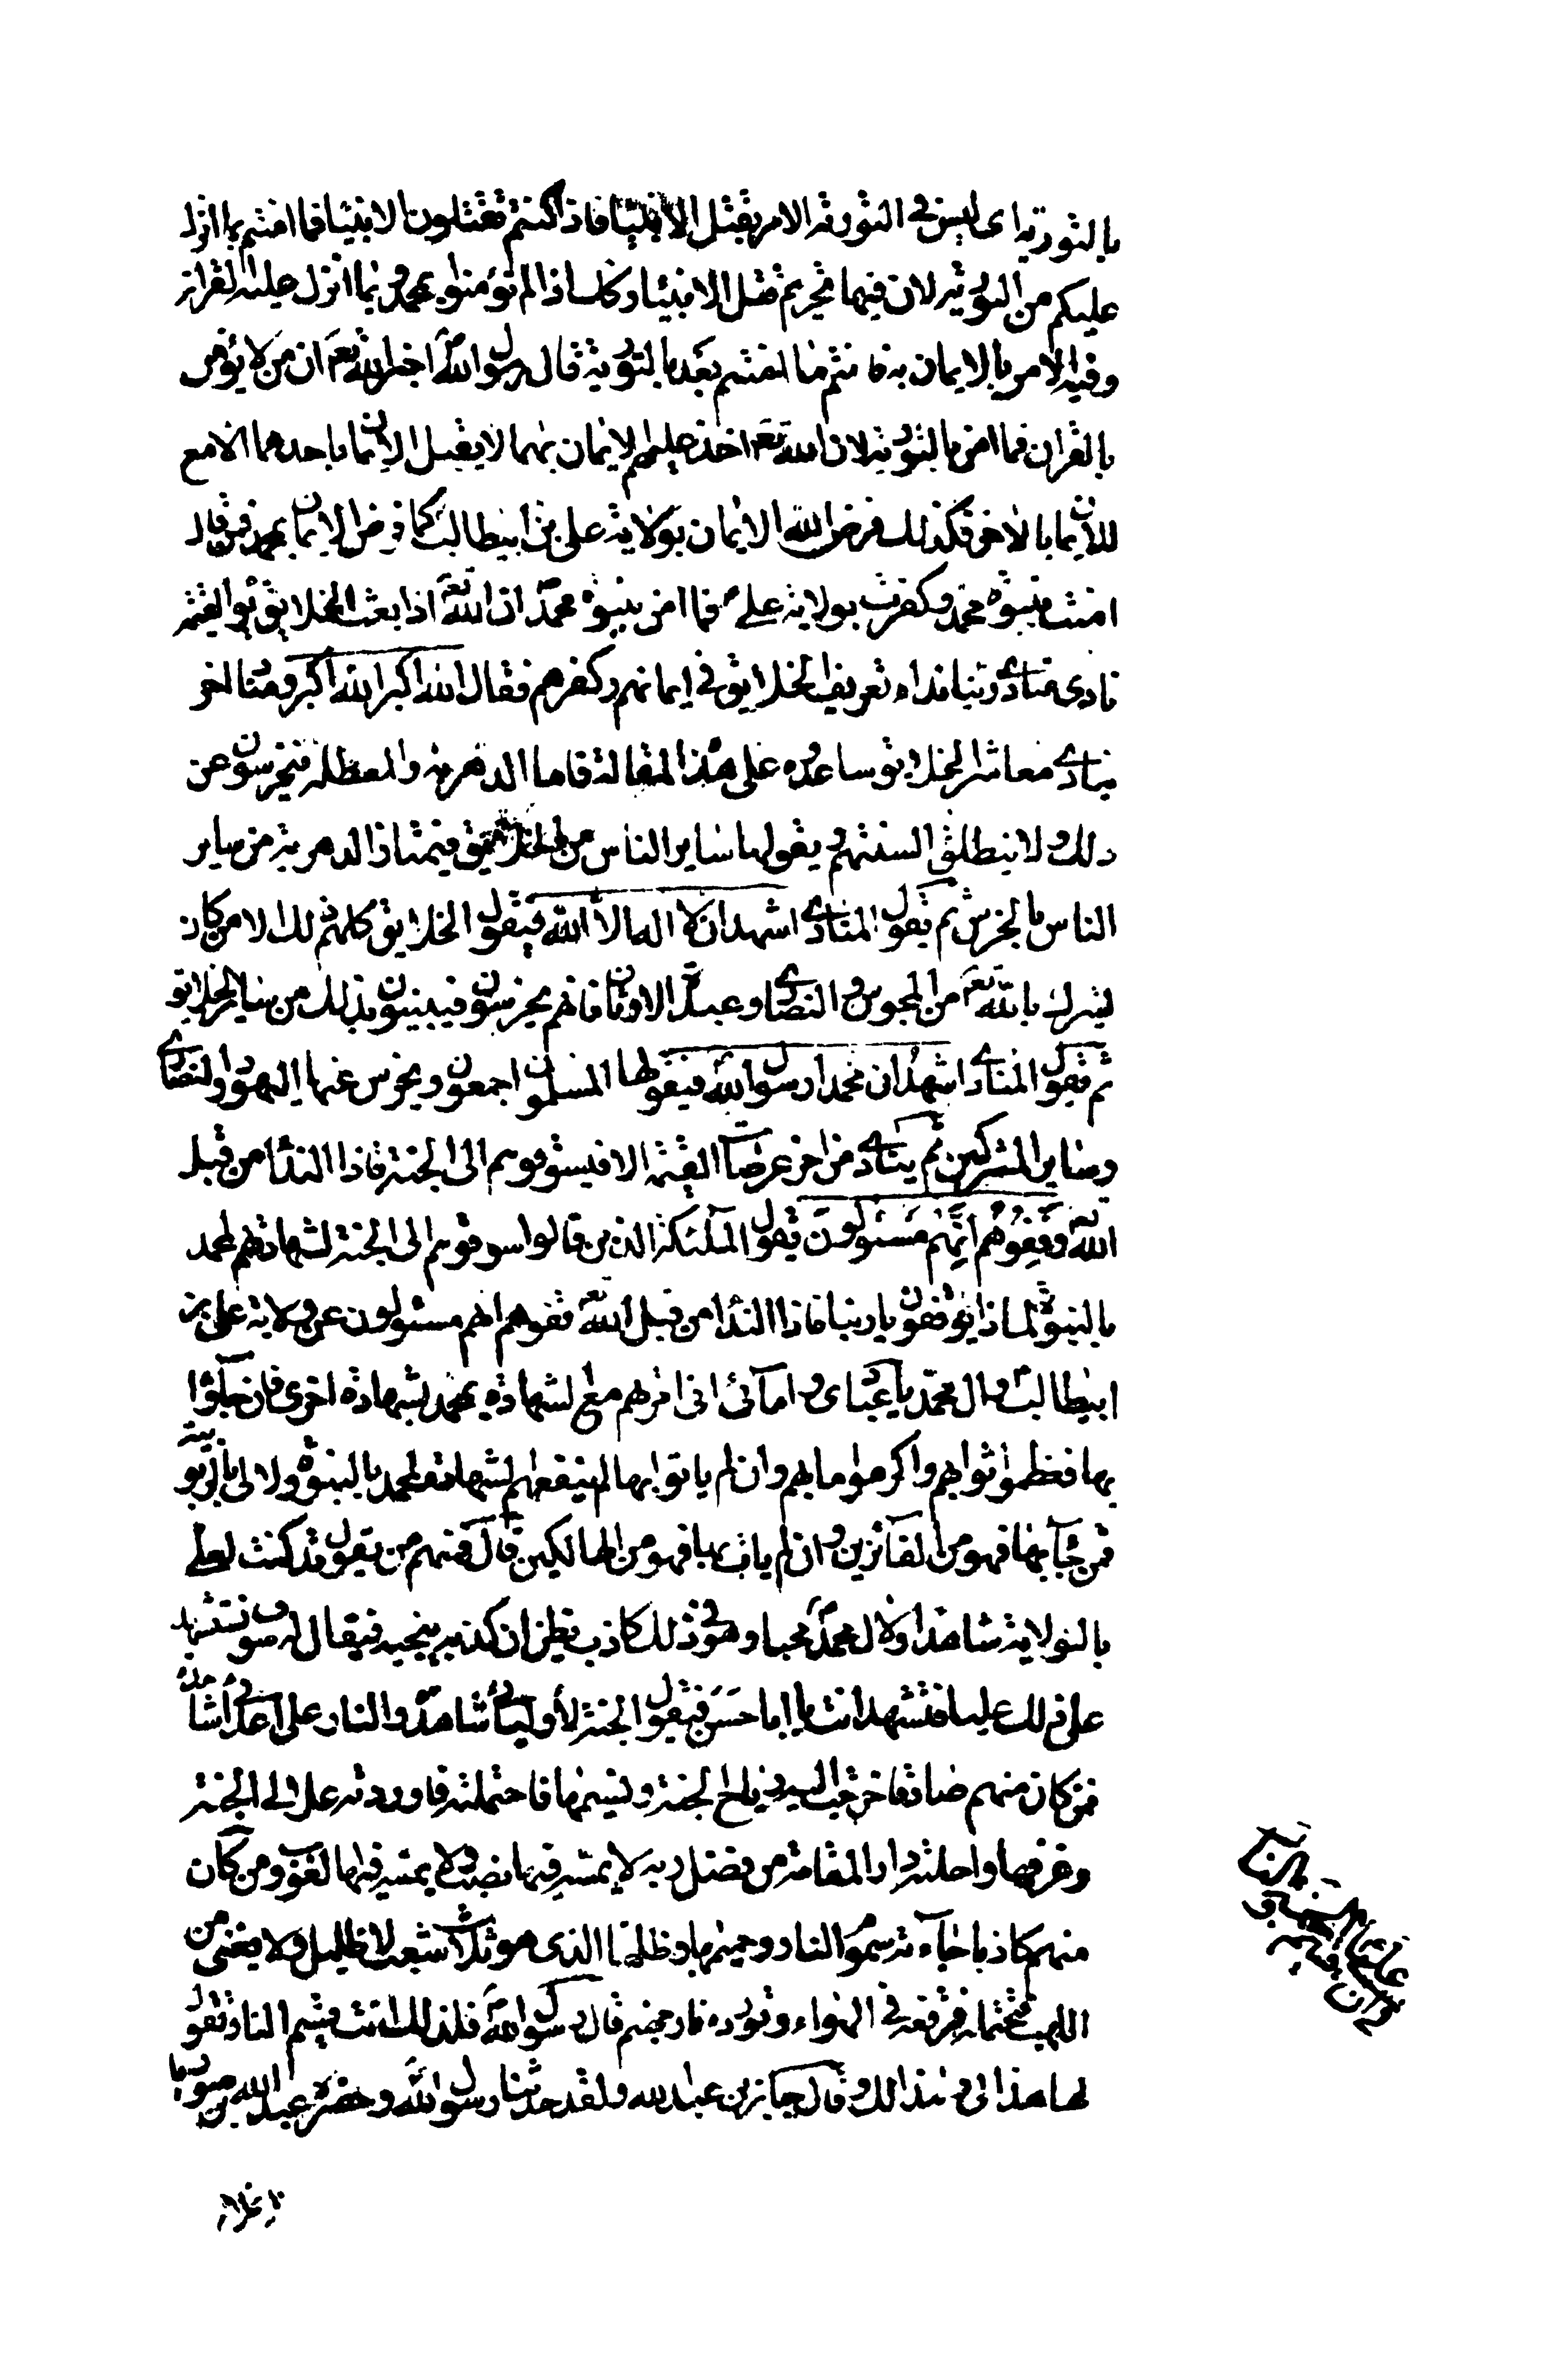 بالتورية اى ليس فى التورية الامر بقتل الانبياء فاذا كنتم تقتلون الانبياء فما امنتم بما انزل
عليكم من التورية لان فيها تحريم قتل الانبيا وكذلك اذا لم تؤمنوا بمحمد و بما انزل عليه القران
وفيه الامر بالايمان به فانتم ما امنتم بعد بالتورية قال رسول الله ص اخبر الله تع ان من لا يؤمن
بالقران فما امن بالتورية لان الله تع اخذ عليهم الايمان بهما لا يقبل الايمان باحدهما الا مع
الايمان بالاخر فكذلك فرض الله الايمان بولاية على بن ابيطالب كما فرض الايمان بمحمد فمن قال
امنت بنبوة محمد وكفرت بولاية على ع فما امن بنبوة محمد ان الله تع اذا بعث الخلايق يوم القيمة
نادى منادى ربنا نداء تعريف الخلايق فى ايمانهم وكفرهم فقال الله اكبر الله اكبر ومناد اخر
ينادى معاشر الخلايق ساعدوه على هذا المقالة فاما الدهرية والمعطلة فيخرسون عن
ذلك ولا ينطلق السنتهم و يقولها ساير الناس من الخلايق فيمتاز الدهرية من ساير
الناس بالخرس ثم يقول المنادى اشهد ان لا اله الا الله فيقول الخلايق كلهم ذلك الا من كان
يشرك بالله تع من المجوس و النصارى وعبدة الاوثان فانهم يخرسون فيبينون بذلك من ساير الخلايق
ثم يقول المنادى اشهد ان محمدا رسول الله فيقولها المسلمون اجمعون ويخرس عنها اليهود والنصارى
وساير المشركين ثم ينادى من اخر عرصات القيمة الا فيسوقوهم الى الجنة فاذا النداء من قبل
الله تع وقفوهم انهم مسئولون يقول الملئكة الذين قالوا سوقوهم الى الجنة لشهادتهم لمحمد
بالنبوة لماذا يوقفون يا ربنا فاذا النداء من قبل الله تع قفوهم انهم مسئولون عن ولاية على بن
ابيطالب و ال محمد يا عبادى و امائى انى امرتهم مع الشهادة بمحمد بشهادة اخرى فان جاؤا
بها فعظموا ثوابهم واكرموا مابهم وان لم ياتوا بها لم ينفعهم الشهادة لمحمد بالنبوة ولا لى بالربوبية
فمن جاء بها فهو من الفائزين و ان لم يات بها فهو من الهالكين قال فمنهم من يقول قد كنت لعلى
بالولاية شاهدا ولال محمد محبا وهو فى ذلك كاذب يظن ان كذبه ينجيه فيقال له سوف نستشهد
على ذلك عليا فتشهد انت يا ابا حسن فيقول الجنة لأوليائى شاهدة والنار على اعدائى شاهدة
فمن كان منهم صادقا خرجت اليه رياح الجنة ونسيمها فاحتملته فاوردته على الى الجنة
وغرفها واحلته دار المقامة من فضل ربه لا يمسه فيها نصب ولا يمسه فيها لغوب ومن كان
منهم كاذبا جاءته سموم النار وحميمها وظلها الذى هو ثلث شعب لا ظليل ولا يغنى من
اللهب فتحتمله فترفعه فى الهواء وتورده نار جهنم قال رسول الله ص فلذلك انت قسيم النار تقول
لها هذا لى و هذا لك و قال جابر بن عبد الله ولقد حدثنا رسول الله ص و حضره عبد الله بن صوريا